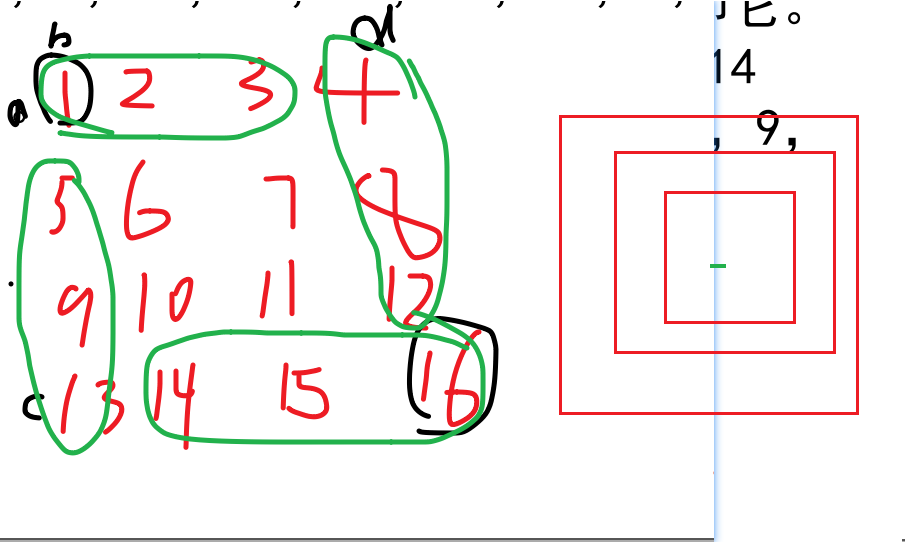 b d
a 1 2 3 4
5 6 7 8
9 10 11 12
c 13 14 15 16
能。
14
, 9,